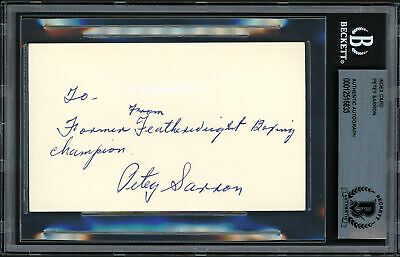 To -
From
Former Featherweight Boxing
champion.
Petey Sarron
BECKETT
INDEX CARD
PETEY SARRON
AUTHENTIC AUTOGRAPH
BECKETT
AUTHENTICATED